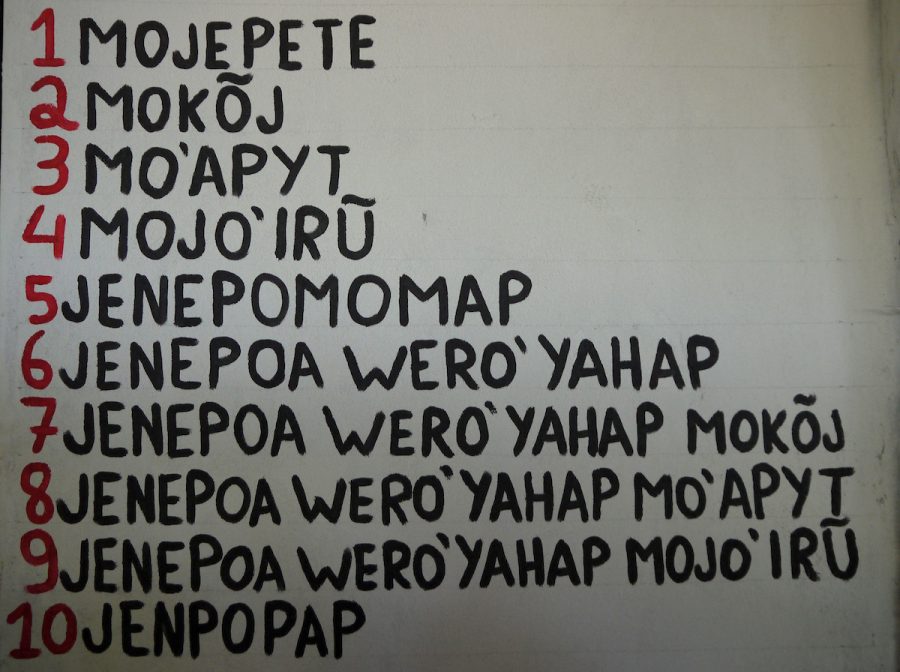 1 MOJEPETE
2 MOKÕJ
3 MO'APYT
4 MOJO'IRŨ
5 JENEPOMOMAP
6 JENEPOA WERO'YAHAP
7 JENEPOA WERO'YAHAP MOKÕJ
8 JENEPOA WERO'YAHAP MO'APYT
9 JENEPOA WERO'YAHAP MOJO'IRŨ
10 JENPOPAP